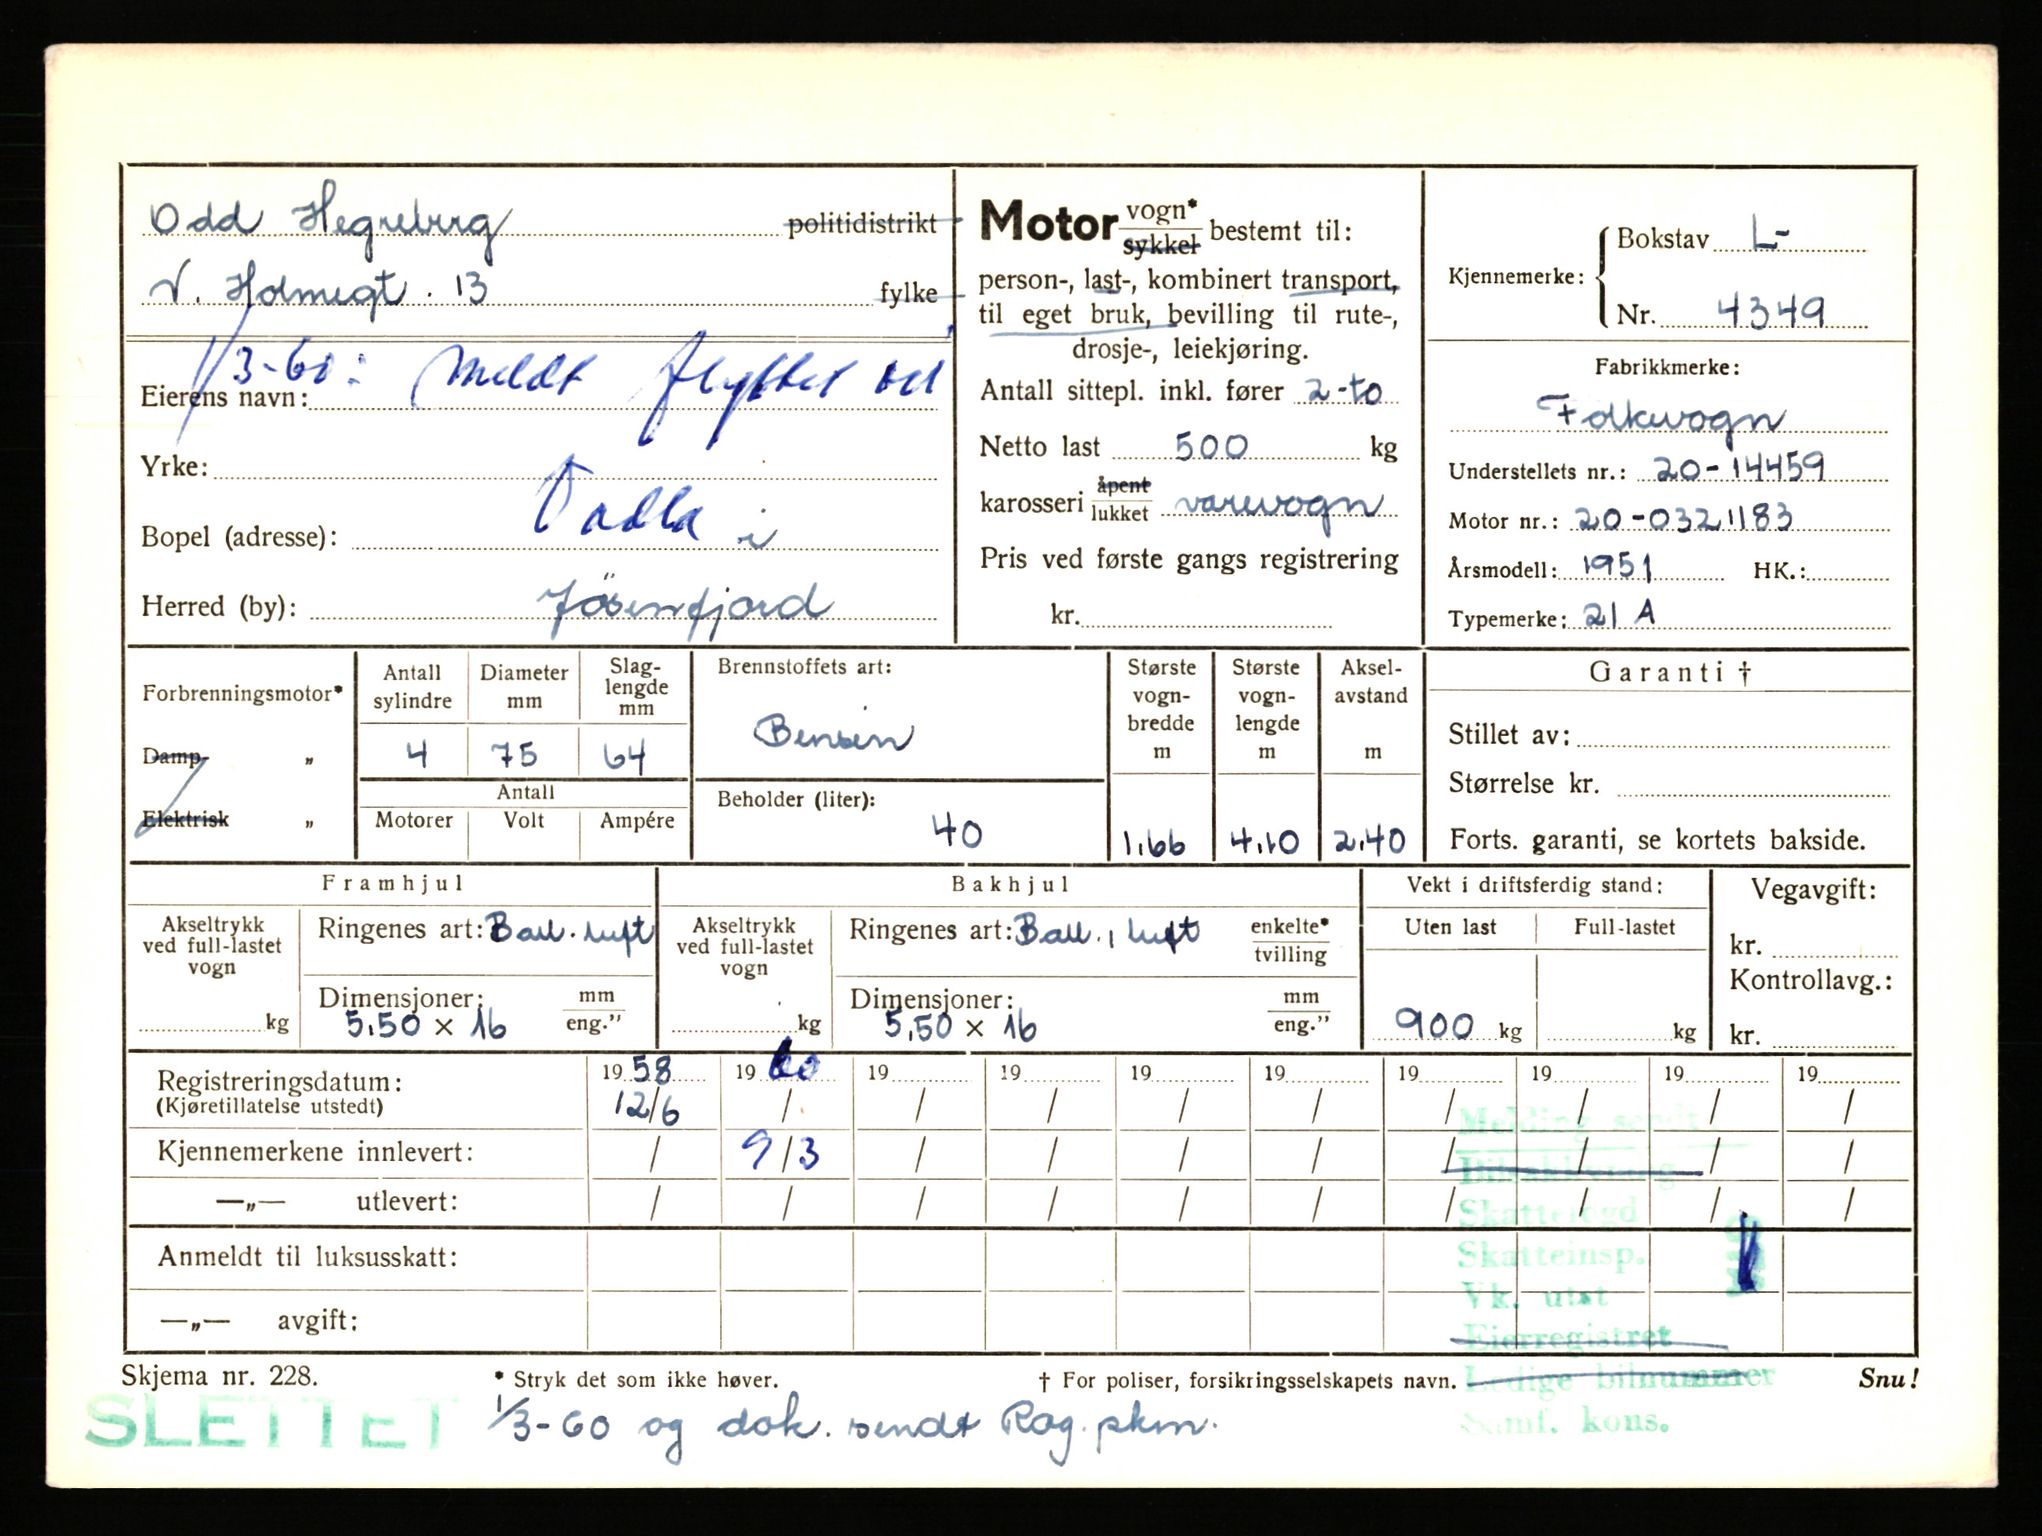 Odd Hegreberg politidistrikt
V. Holmegt. 13 fylke
1/3-60: Meldt flyttet til
Eierens navn:
Yrke:
Vadla i
Bopel (adresse):
Herred (by): Jøsenfjord
Motor vogn* sykkel bestemt til:
person-, last-, kombinert transport,
til eget bruk, bevilling til rute-,
drosje-, leiekjøring.
Antall sittepl. inkl. fører 2-to
Netto last 500 kg
karosseri åpent lukket varevogn
Pris ved første gangs registrering
kr.
Kjennemerke: Bokstav L-
Nr. 4349
Fabrikkmerke:
Folkevogn
Understellets nr.: 20-14459
Motor nr.: 20-0321183
Årsmodell: 1951 HK.:
Typemerke: 21 A
Forbrenningsmotor*
Damp- „
Elektrisk „
Antall sylindre
Diameter mm
Slag-lengde mm
4 75 64
Antall
Motorer Volt Ampére
Brennstoffets art:
Bensin
Beholder (liter):
40
Største vogn-bredde m
1.66
Største vogn-lengde m
4.10
Aksel-avstand m
2.40
Garanti †
Stillet av:
Størrelse kr.
Forts. garanti, se kortets bakside.
Framhjul
Akseltrykk ved full-lastet vogn
kg
Ringenes art: Ball. luft
Dimensjoner: mm eng."
5.50 × 16
Bakhjul
Akseltrykk ved full-lastet vogn
kg
Ringenes art: Ball., luft enkelte* tvilling
Dimensjoner: mm eng."
5.50 × 16
Vekt i driftsferdig stand:
Uten last Full-lastet
900 kg kg
Vegavgift:
kr.
Kontrollavg.:
kr.
Registreringsdatum: 19 58 19 60 19 19 19 19 19 19 19 19
(Kjøretillatelse utstedt) 12/6 / / / / / / / / /
Kjennemerkene innlevert: / 9/3 / / / / / / / /
—„— utlevert: / / / / / / / / / /
Anmeldt til luksusskatt:
—„— avgift:
Melding sendt
Skattefogd
Skatteinsp.
Vk. utst
Eierregistret
Ledige bilnummer
Samf. kons.
Skjema nr. 228. * Stryk det som ikke høver. † For poliser, forsikringsselskapets navn. Snu!
SLETTET 1/3-60 og dok. sendt Rog. pkm.